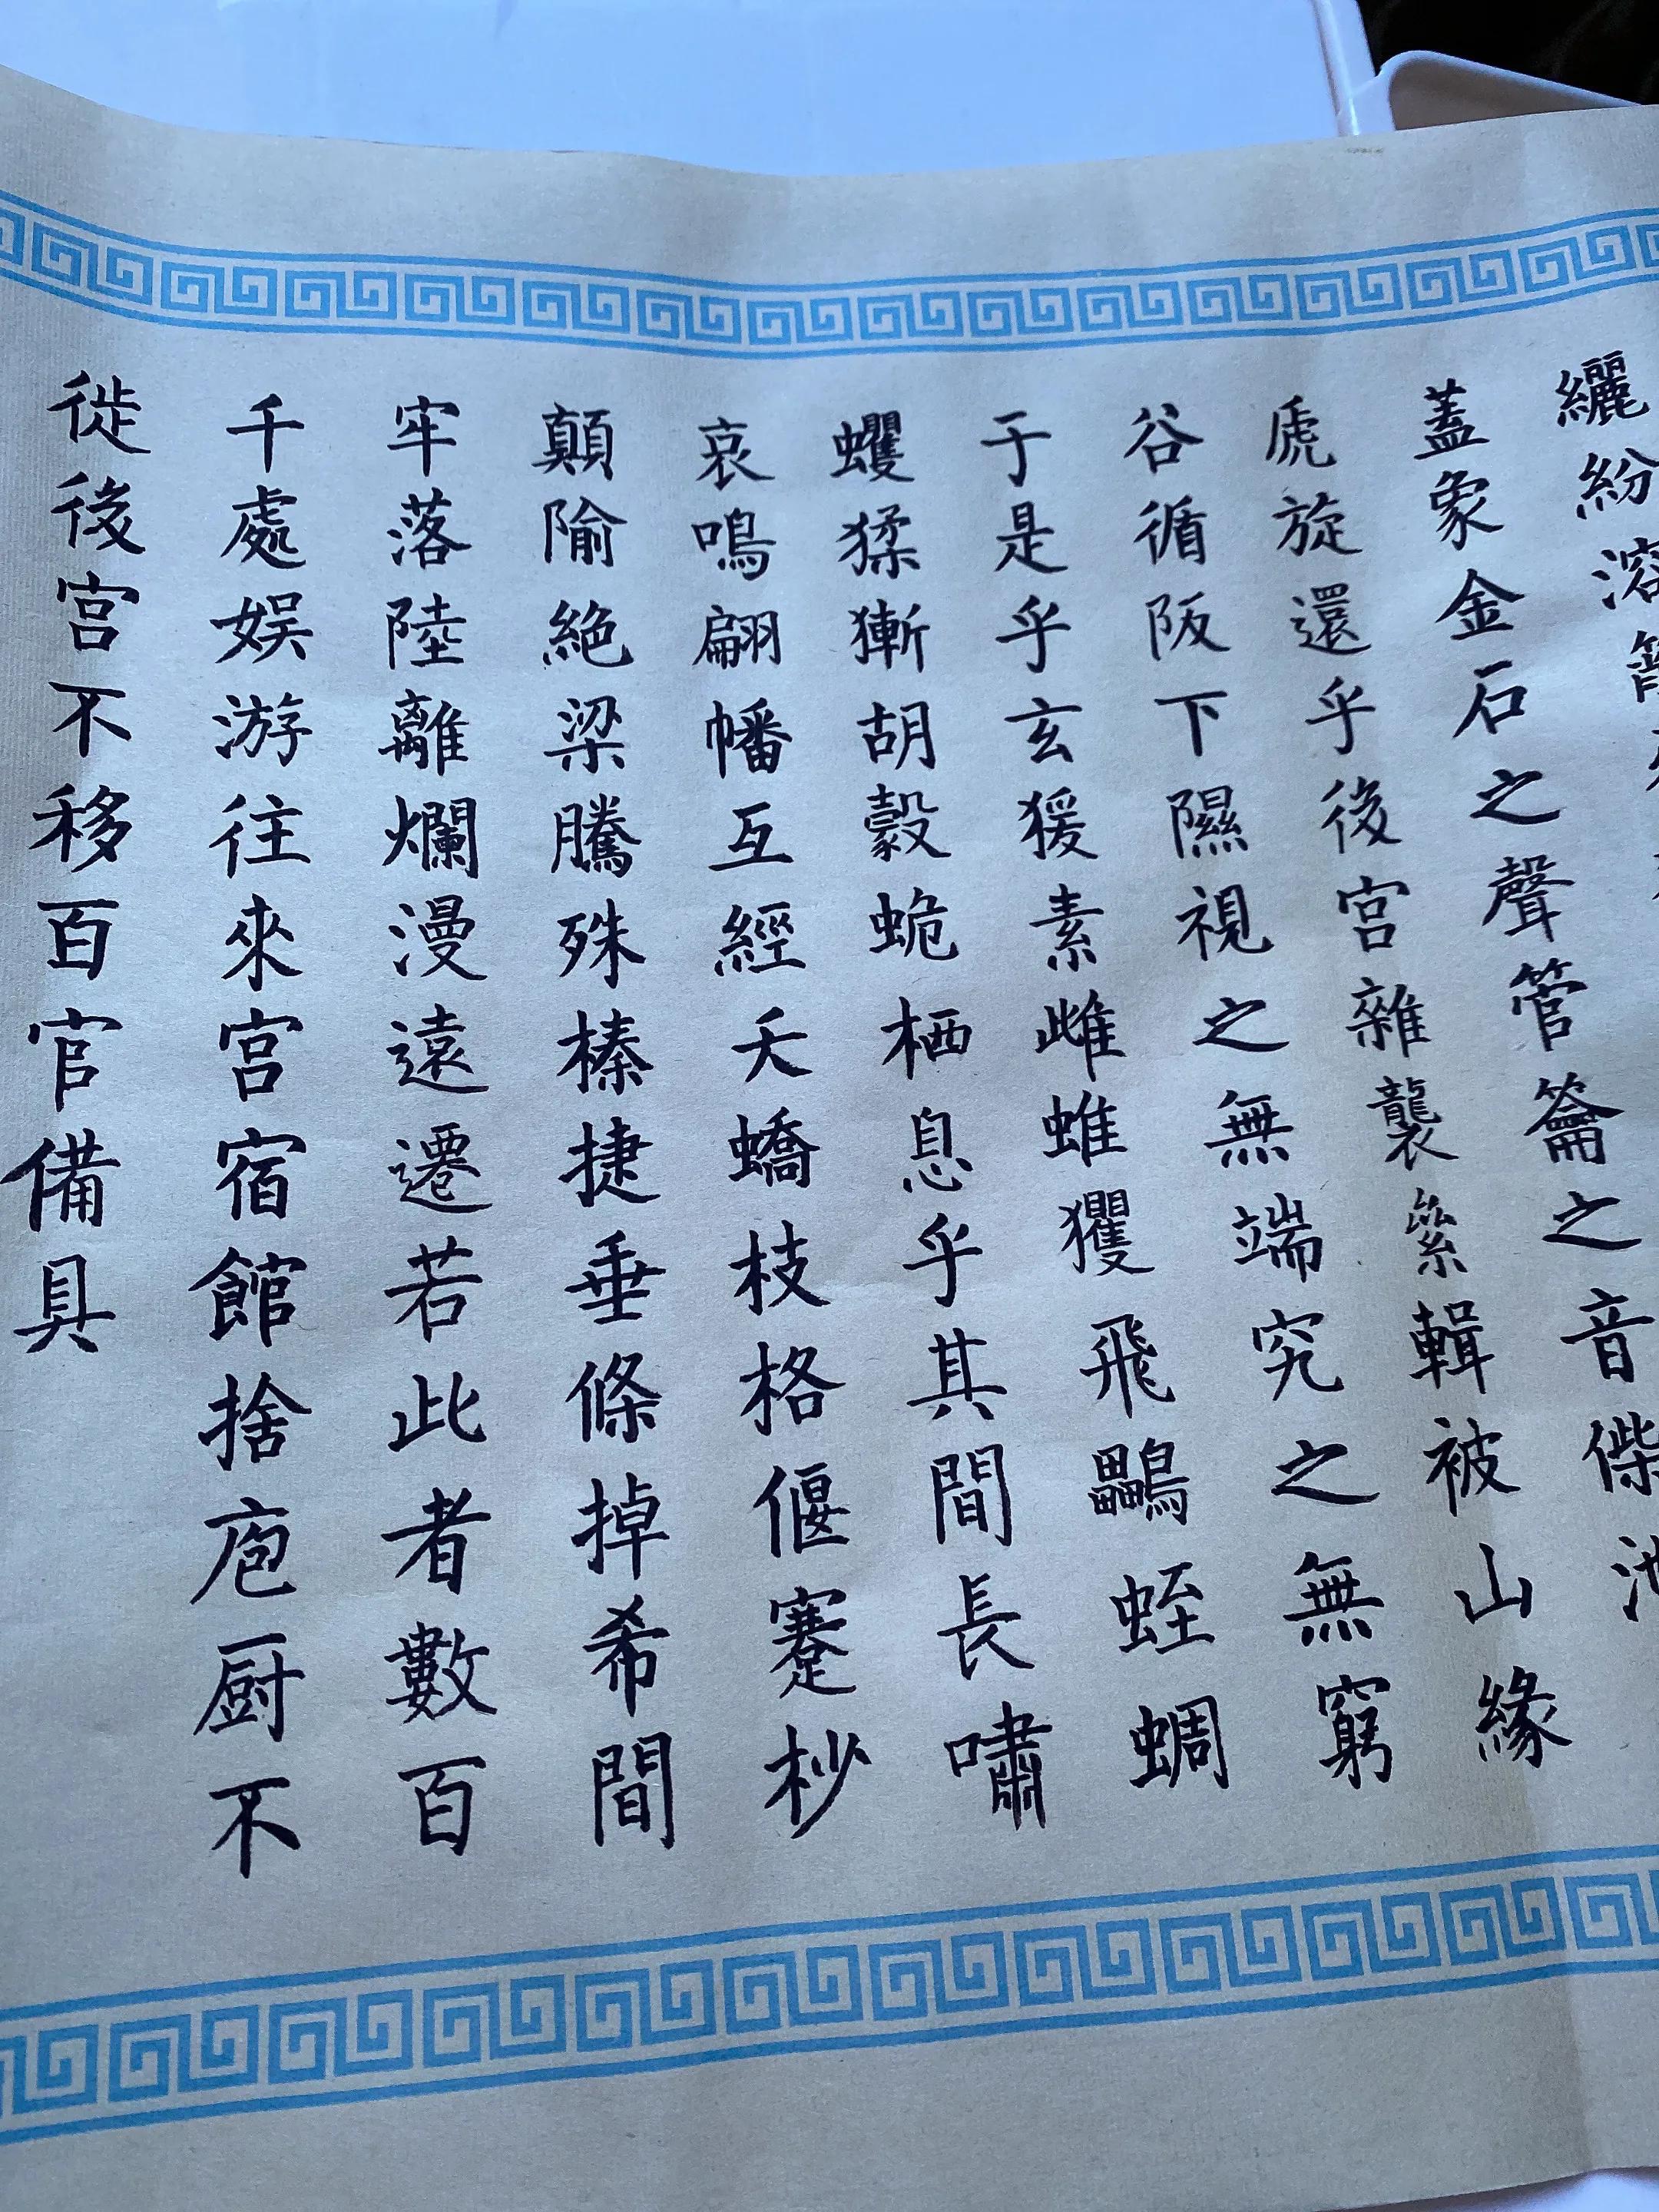 纚紛溶
蓋象金石之聲管籥之音偨池
虒旋還乎後宮雜襲絫輯被山緣
谷循阪下隰視之無端究之無窮
于是乎玄猨素雌蜼玃飛鸓蛭蜩
蠼猱獑胡豰蛫栖息乎其間長嘯
哀鳴翩幡互經夭蟜枝格偃蹇杪
顛隃絶梁騰殊榛捷垂條掉希間
牢落陸離爛漫遠遷若此者數百
千處娛游往來宮宿館捨庖厨不
徙後宮不移百官備具